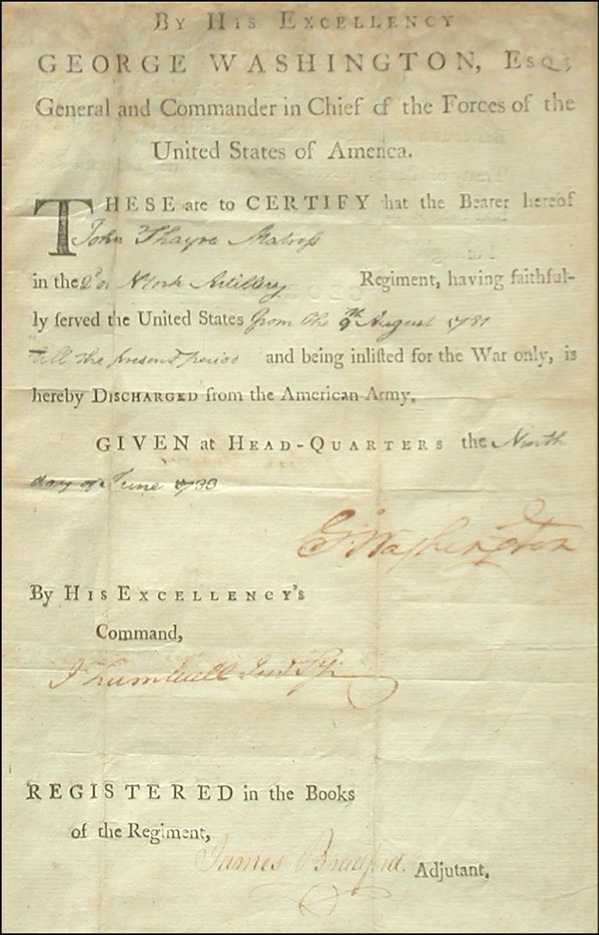 BY HIS EXCELLENCY
GEORGE WASHINGTON, ESQ;
General and Commander in Chief of the Forces of the
United States of America.
THESE are to CERTIFY that the Bearer hereof
John Thayre Matross
in the 2d N York Artillery Regiment, having faithful-
ly served the United States from the 9th August 1781
till the present period and being inlisted for the War only, is
hereby DISCHARGED from the American Army.
GIVEN at HEAD-QUARTERS the Ninth
day of June 1783
G: Washington
BY HIS EXCELLENCY'S
Command,
J Trumbull Jun Sy.
REGISTERED in the Books
of the Regiment,
James Bradford. Adjutant.